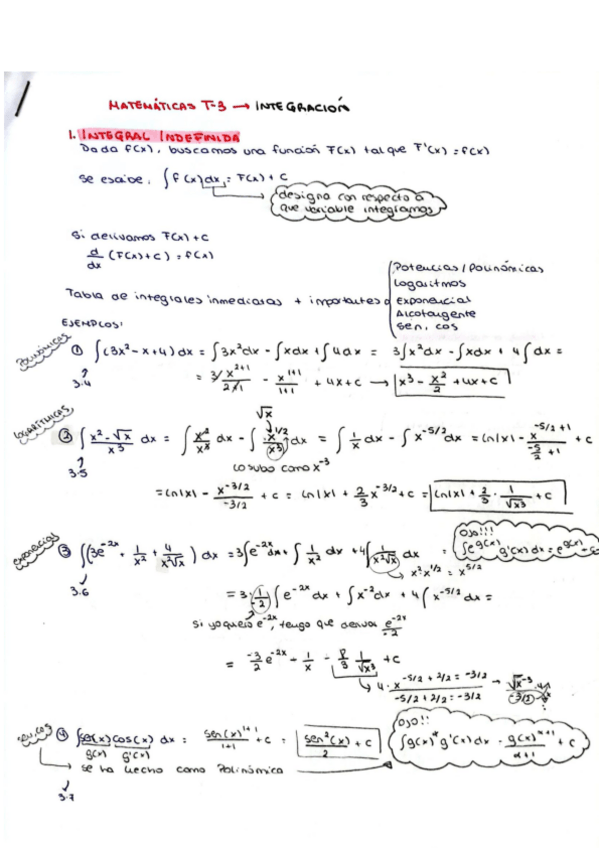 MATEMÁTICAS T-3 → INTEGRACIÓN
1. INTEGRAL INDEFINIDA
Dada f(x), buscamos una función F(x) tal que F'(x) = f(x)
Se escribe, ∫f(x)dx = F(x) + C
designa con respecto a
que variable integramos
Si derivamos F(x) + C
d/dx (F(x)+c) = f(x)
Potencias / Polinómicas
Logaritmos
Tabla de integrales inmediatas + importantes
Exponencial
Arcotangente
Sen, cos
EJEMPLOS:
Polinómicas
① ∫(3x² - x + 4) dx = ∫3x²dx - ∫xdx + ∫4dx = 3∫x²dx - ∫xdx + 4∫dx =
3.4
= 3 x^(2+1)/(2+1) - x^(1+1)/(1+1) + 4x + c → x³ - x²/2 + 4x + c
logarítmicas
√x
② ∫ (x² - √x)/x³ dx = ∫ x²/x³ dx - ∫ x^(1/2)/x³ dx = ∫ 1/x dx - ∫ x^(-5/2) dx = ln|x| - x^(-5/2+1)/(-5/2+1) + c
3.5
lo subo como x⁻³
= ln|x| - x^(-3/2)/(-3/2) + c = ln|x| + 2/3 x^(-3/2) + c = ln|x| + 2/3 · 1/√x³ + c
exponencial
③ ∫(3e^(-2x) + 1/x² + 4/(x²√x)) dx = 3∫e^(-2x)dx + ∫ 1/x² dx + 4∫ 1/(x²√x) dx =
OJO!!!
∫e^(g(x)) g'(x) dx = e^(g(x)) + c
3.6
→ x² x^(1/2) = x^(5/2)
= 3 · 1/-2 ∫e^(-2x) dx + ∫x⁻²dx + 4∫x^(-5/2) dx =
si yo quiero e^(-2x), tengo que derivar e^(-2x)/-2
= -3/2 e^(-2x) - 1/x - 8/3 1/√x³ + c
4 · x^(-5/2 + 2/2 = -3/2)/(-5/2 + 2/2 = -3/2) →
sen, cos
④ ∫sen(x) cos(x) dx = sen(x)^(1+1)/(1+1) + c = sen²(x)/2 + c
g(x) g'(x)
OJO!!
∫g(x)^α g'(x) dx = g(x)^(α+1)/(α+1) + c
se ha hecho como Polinómica
3.7